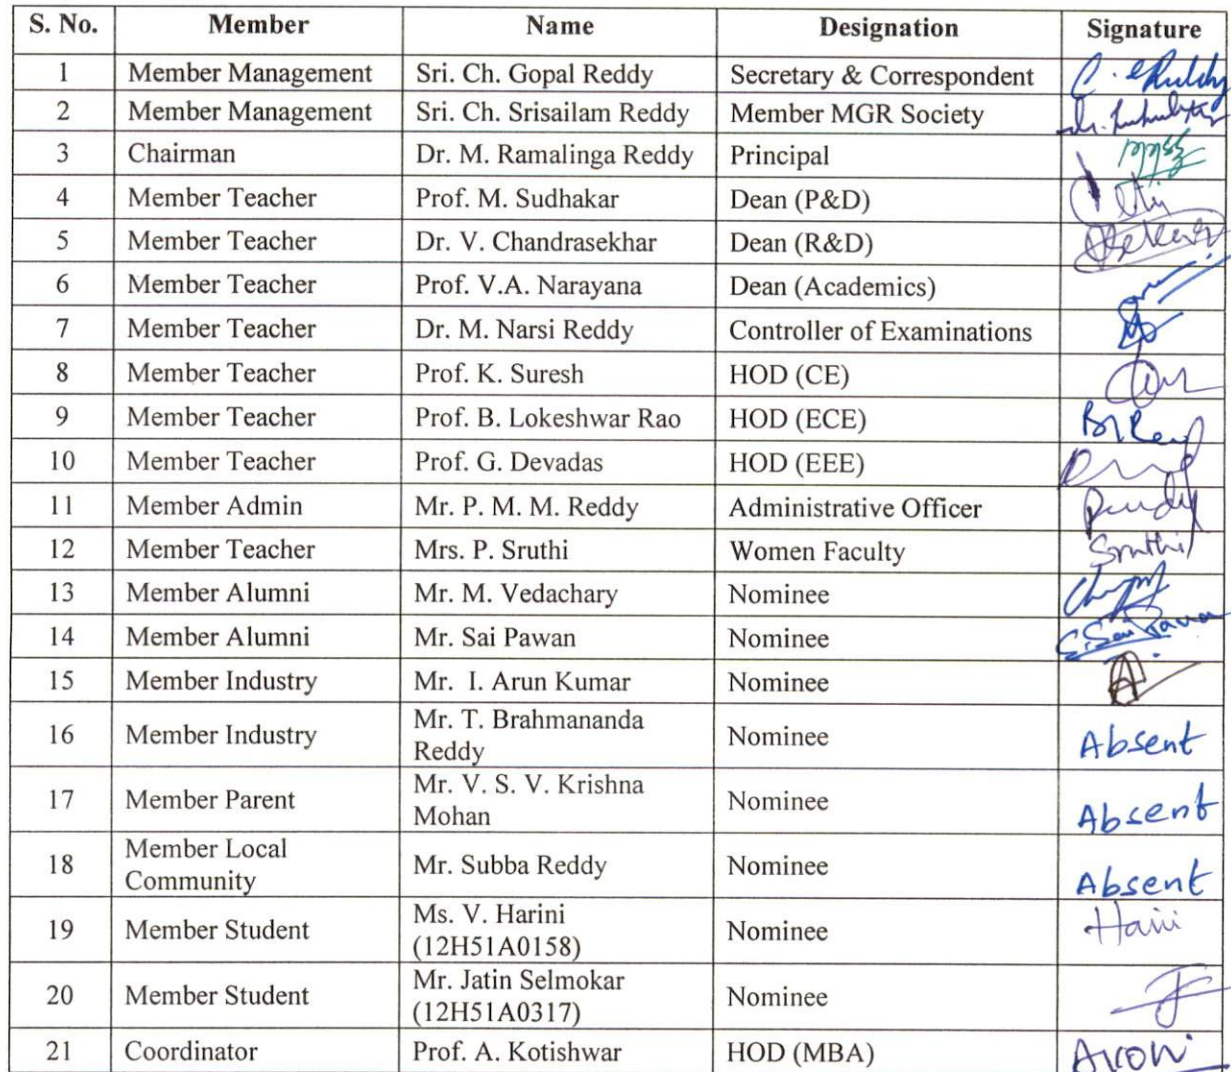 S. No. Member Name Designation Signature
1 Member Management Sri. Ch. Gopal Reddy Secretary & Correspondent
2 Member Management Sri. Ch. Srisailam Reddy Member MGR Society
3 Chairman Dr. M. Ramalinga Reddy Principal
4 Member Teacher Prof. M. Sudhakar Dean (P&D)
5 Member Teacher Dr. V. Chandrasekhar Dean (R&D)
6 Member Teacher Prof. V.A. Narayana Dean (Academics)
7 Member Teacher Dr. M. Narsi Reddy Controller of Examinations
8 Member Teacher Prof. K. Suresh HOD (CE)
9 Member Teacher Prof. B. Lokeshwar Rao HOD (ECE)
10 Member Teacher Prof. G. Devadas HOD (EEE)
11 Member Admin Mr. P. M. M. Reddy Administrative Officer
12 Member Teacher Mrs. P. Sruthi Women Faculty Sruthi
13 Member Alumni Mr. M. Vedachary Nominee
14 Member Alumni Mr. Sai Pawan Nominee E. Sai Pavan
15 Member Industry Mr. I. Arun Kumar Nominee
16 Member Industry Mr. T. Brahmananda
Reddy Nominee Absent
17 Member Parent Mr. V. S. V. Krishna
Mohan Nominee Absent
18 Member Local
Community Mr. Subba Reddy Nominee Absent
19 Member Student Ms. V. Harini
(12H51A0158) Nominee
20 Member Student Mr. Jatin Selmokar
(12H51A0317) Nominee
21 Coordinator Prof. A. Kotishwar HOD (MBA)